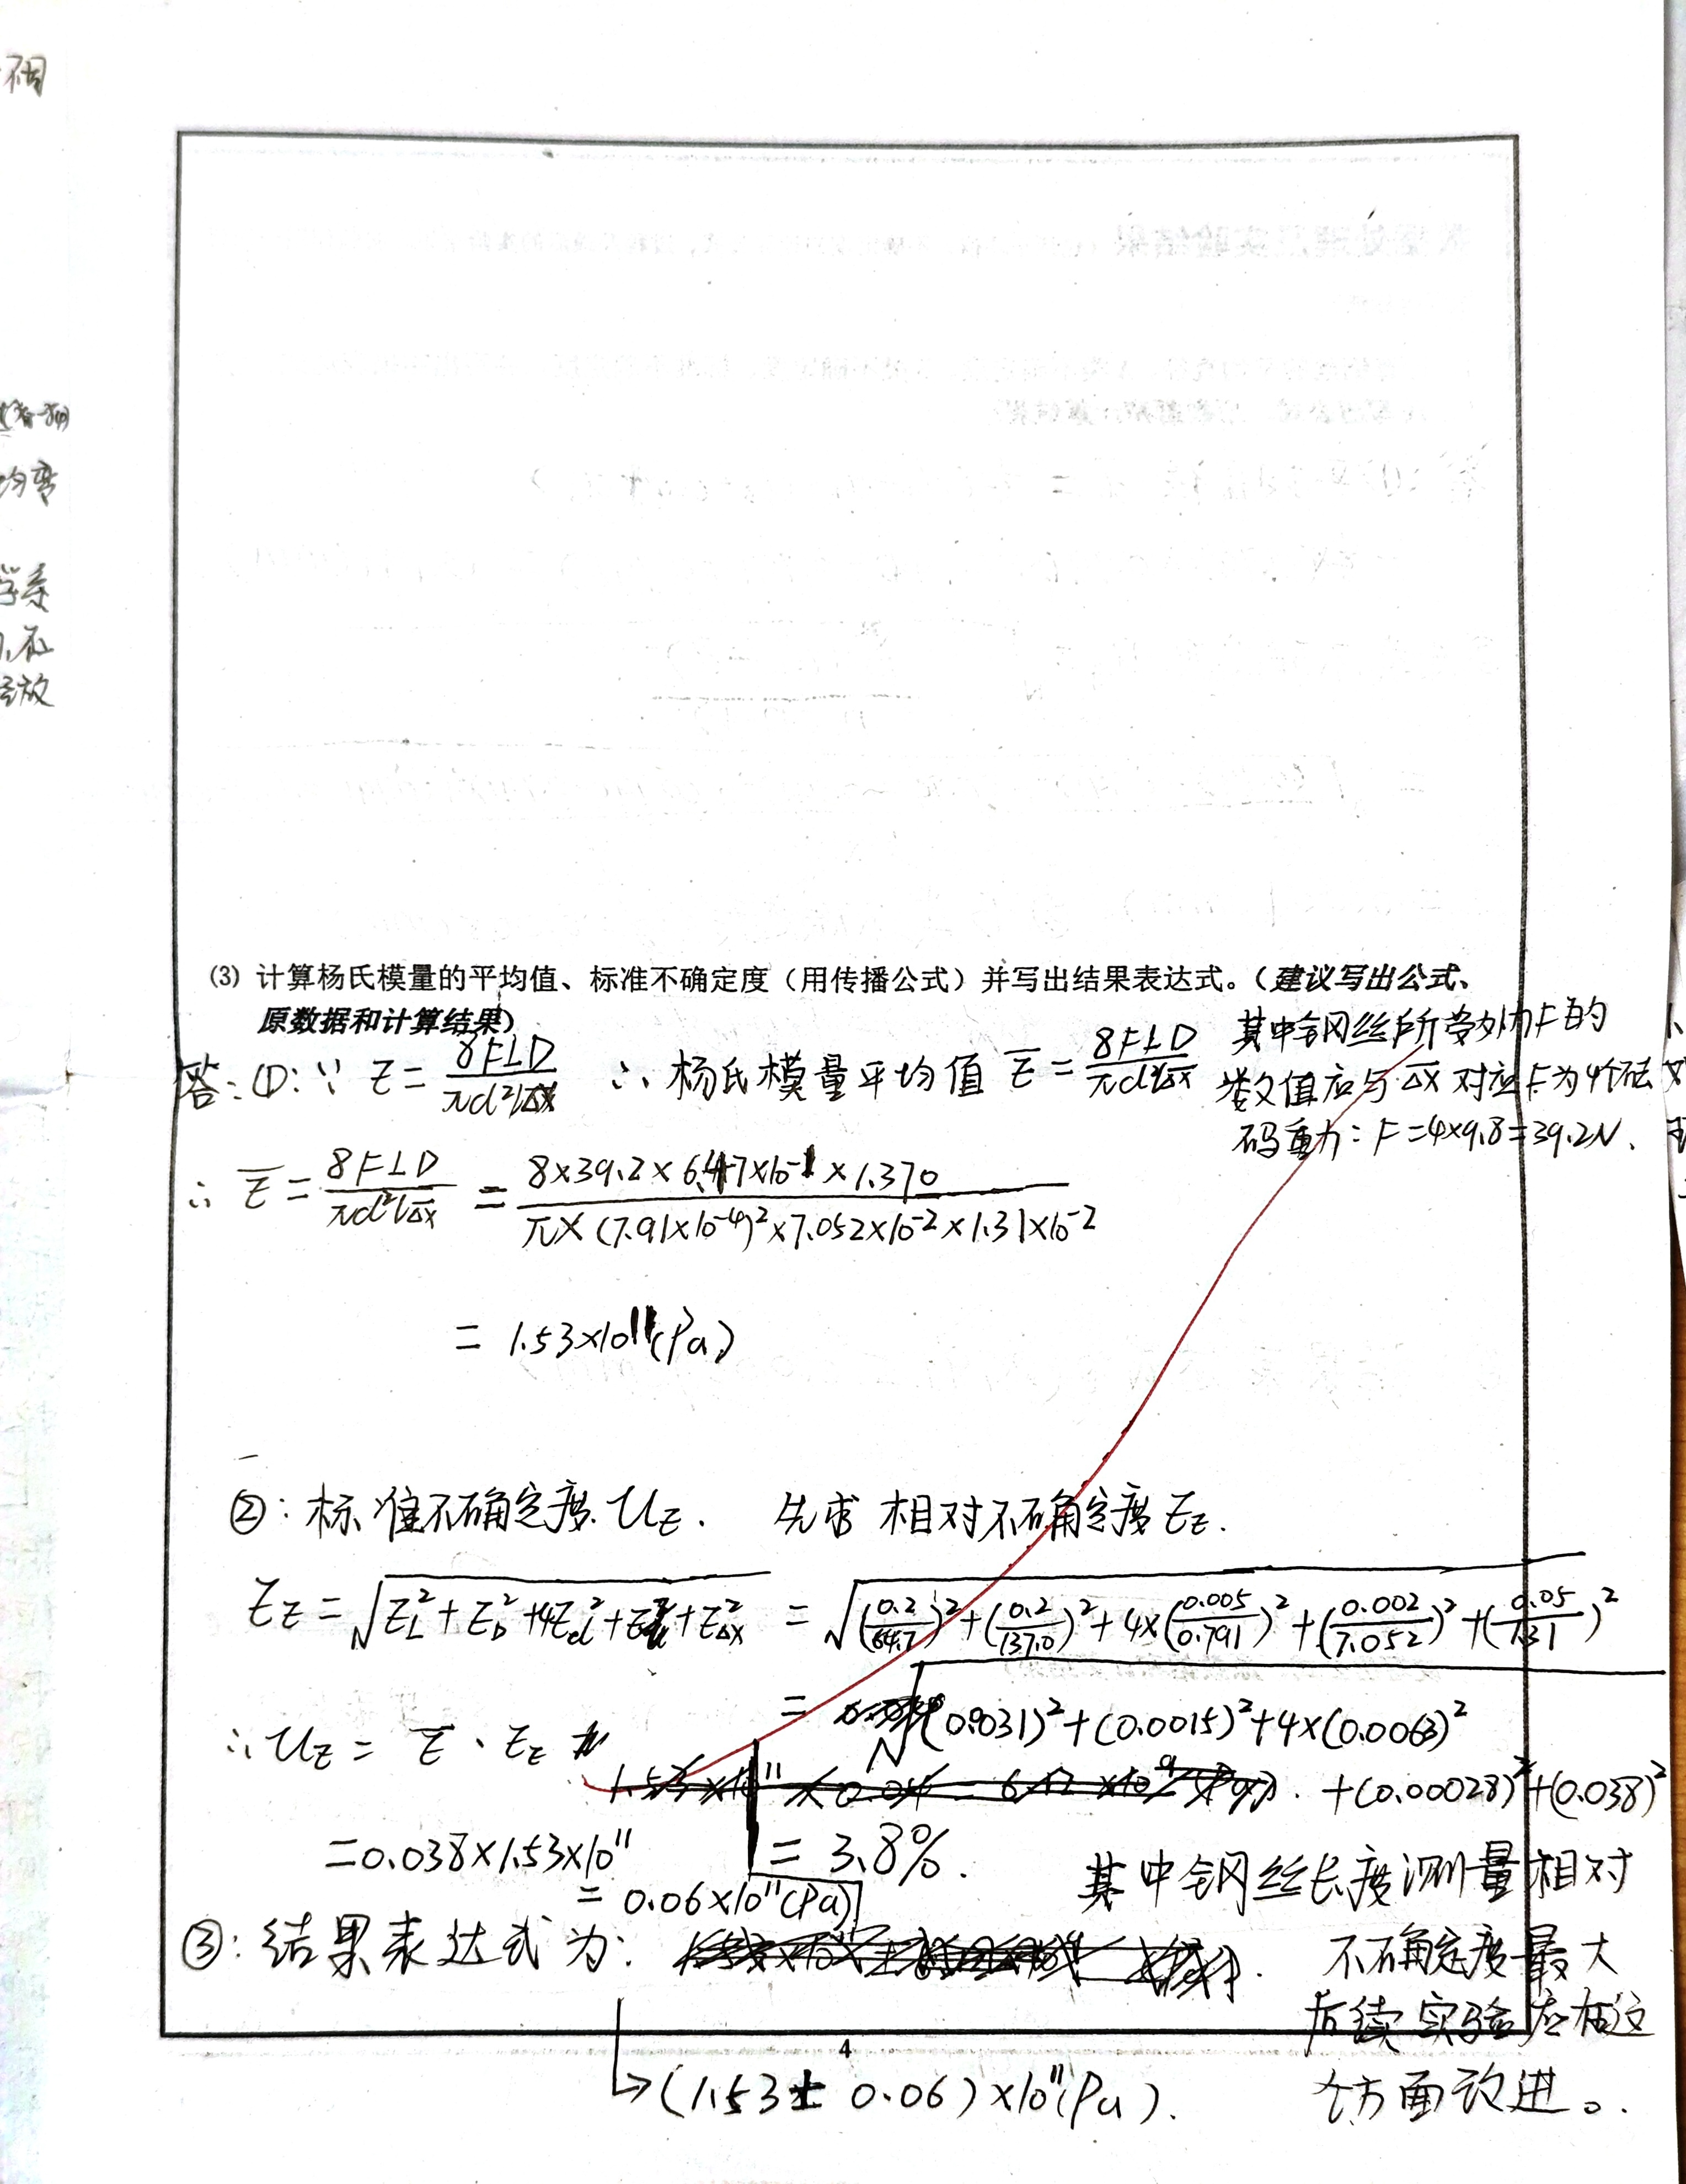 (3) 计算杨氏模量的平均值、标准不确定度（用传播公式）并写出结果表达式。（建议写出公式、
原数据和计算结果）
答：①：∵ E = 8FLD / πd²lΔx ∴ 杨氏模量平均值 E̅ = 8FLD / πd²lΔx̅
其中钢丝所受外力F的
数值应与 Δx̅ 对应F为4个砝
码重力：F=4×9.8=39.2N.
∴ E̅ = 8FLD / πd²lΔx̅ = 8×39.2×6.47×10⁻¹×1.370 / π×(7.91×10⁻⁴)²×7.052×10⁻²×1.31×10⁻²
= 1.53×10¹¹(Pa)
②：标准不确定度 U_E. 先求 相对不确定度 E_E.
E_E = √(E_L² + E_D² + 4E_d² + E_l² + E_Δx²) = √((0.2/64.7)² + (0.2/137.0)² + 4×(0.005/0.791)² + (0.002/7.052)² + (0.05/1.31)²)
= √((0.0031)² + (0.0015)² + 4×(0.0063)²
+(0.00028)² + (0.038)²
∴ U_E = E̅ · E_E
= 0.038×1.53×10¹¹
= 0.06×10¹¹(Pa)
= 3.8%.
其中钢丝长度测量相对
不确定度最大
后续实验应在这
个方面改进。
③：结果表达式为：
→(1.53 ± 0.06)×10¹¹(Pa).
4
捆
均弯
学系
放